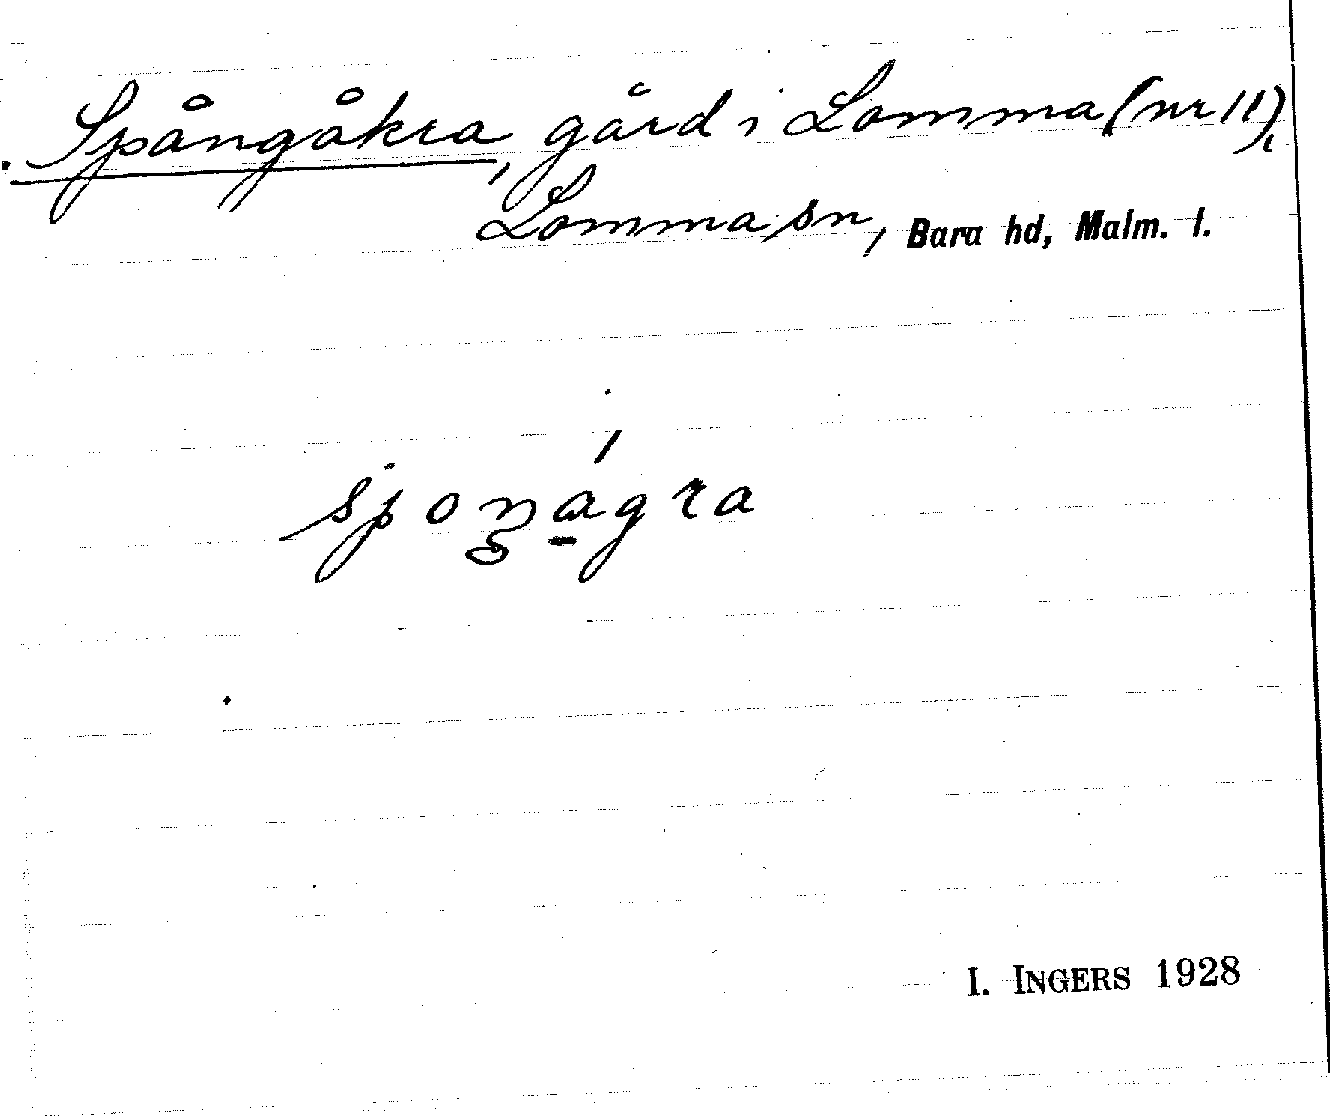 Spångåkra, gård i Lomma (nr 11),
Lomma sn, Bara hd, Malm. l.
spoŋágra
I. INGERS 1928